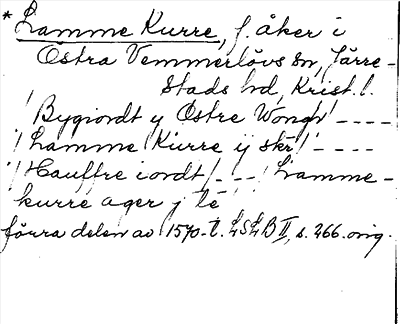 * Lamme Kurre, f. åker i
Östra Vemmerlövs sn, Järre-
stads hd, Krist. l.
/ Bygiordt y Østre Wongh / ----
/ Lamme Kurre ij skr / ----
/ Hauffre iordt / --- / Lamme-
kurre ager j le
förra delen av 1570-t. LSLB II, s. 266. orig.